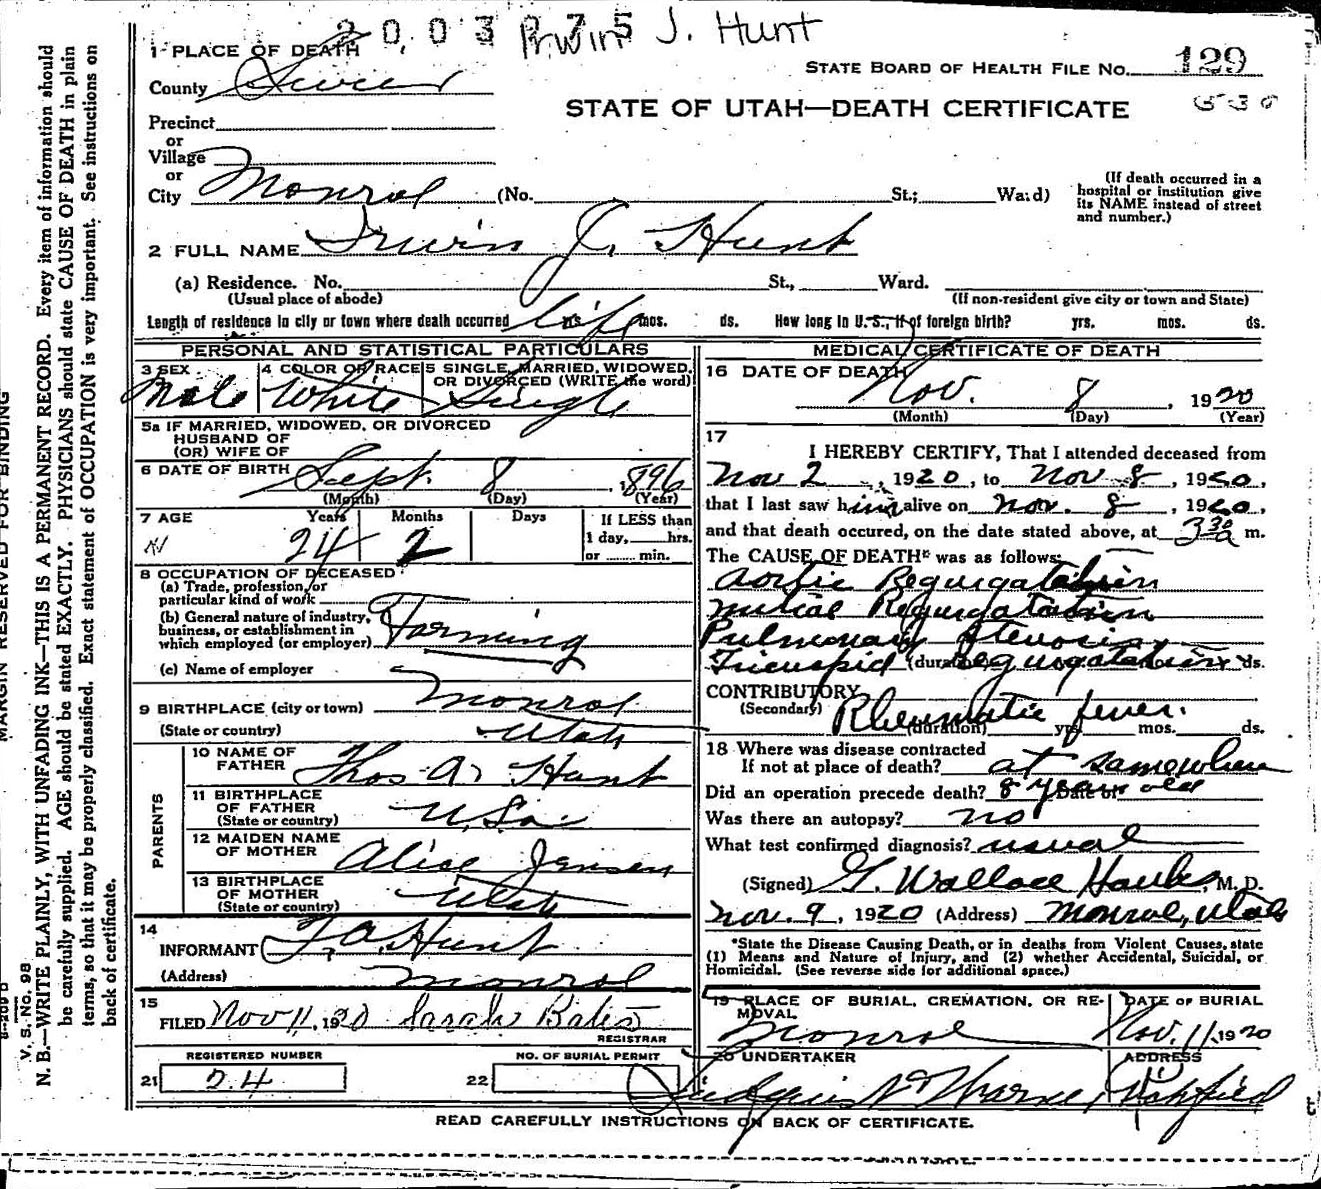 2003075 Irwin J. Hunt
1 PLACE OF DEATH
STATE BOARD OF HEALTH FILE No. 129
County Sevier
STATE OF UTAH—DEATH CERTIFICATE
530
Precinct
or
Village
or
City Monroe (No. St.; Ward)
(If death occurred in a
hospital or institution give
its NAME instead of street
and number.)
2 FULL NAME Irwin J. Hunt
(a) Residence. No. St., Ward.
(Usual place of abode) (If non-resident give city or town and State)
Length of residence in city or town where death occurred life yrs. mos. ds. How long in U. S., if of foreign birth? yrs. mos. ds.
PERSONAL AND STATISTICAL PARTICULARS
3 SEX 4 COLOR OR RACE 5 SINGLE, MARRIED, WIDOWED,
OR DIVORCED (WRITE the word)
Male White Single
5a IF MARRIED, WIDOWED, OR DIVORCED
HUSBAND OF
(OR) WIFE OF
6 DATE OF BIRTH Sept. 8, 1896
(Month) (Day) (Year)
7 AGE Years Months Days If LESS than
1 day, hrs.
or min.
24 2
8 OCCUPATION OF DECEASED
(a) Trade, profession, or
particular kind of work
(b) General nature of industry,
business, or establishment in
which employed (or employer) Farming
(c) Name of employer
9 BIRTHPLACE (city or town) Monroe
(State or country) Utah
PARENTS
10 NAME OF
FATHER Thos. A. Hunt
11 BIRTHPLACE
OF FATHER
(State or country) U.S.a.
12 MAIDEN NAME
OF MOTHER Alice Jensen
13 BIRTHPLACE
OF MOTHER
(State or country) Utah
14
INFORMANT T. A. Hunt
(Address) Monroe
15
FILED Nov 11, 1920 Sarah Bates
REGISTRAR
REGISTERED NUMBER NO. OF BURIAL PERMIT
21 24 22
MEDICAL CERTIFICATE OF DEATH
16 DATE OF DEATH
Nov. 8, 1920
(Month) (Day) (Year)
17
I HEREBY CERTIFY, That I attended deceased from
Nov 2, 1920, to Nov 8, 1920,
that I last saw him alive on Nov. 8, 1920,
and that death occured, on the date stated above, at 3 30 a m.
The CAUSE OF DEATH* was as follows:
Aortic Regurgatation
Mitral Regurgatation
Pulmonary Stenosis
Tricuspid (duration) Regurgatation ds.
CONTRIBUTORY
(Secondary) Rheumatic fever.
(duration) yrs. mos. ds.
18 Where was disease contracted
If not at place of death? at somewhere
Did an operation precede death? 8 years old Date of
Was there an autopsy? no
What test confirmed diagnosis? usual
(Signed) G. Wallace Hawks, M. D.
Nov. 9, 1920 (Address) Monroe, Utah
*State the Disease Causing Death, or in deaths from Violent Causes, state
(1) Means and Nature of Injury, and (2) whether Accidental, Suicidal, or
Homicidal. (See reverse side for additional space.)
19 PLACE OF BURIAL, CREMATION, OR RE-
MOVAL DATE OF BURIAL
Monroe Nov. 11, 1920
20 UNDERTAKER ADDRESS
Richfield
READ CAREFULLY INSTRUCTIONS ON BACK OF CERTIFICATE.
MARGIN RESERVED FOR BINDING
V. S. No. 98
N. B.—WRITE PLAINLY, WITH UNFADING INK—THIS IS A PERMANENT RECORD. Every item of information should
be carefully supplied. AGE should be stated EXACTLY. PHYSICIANS should state CAUSE OF DEATH in plain
terms, so that it may be properly classified. Exact statement of OCCUPATION is very important. See instructions on
back of certificate.